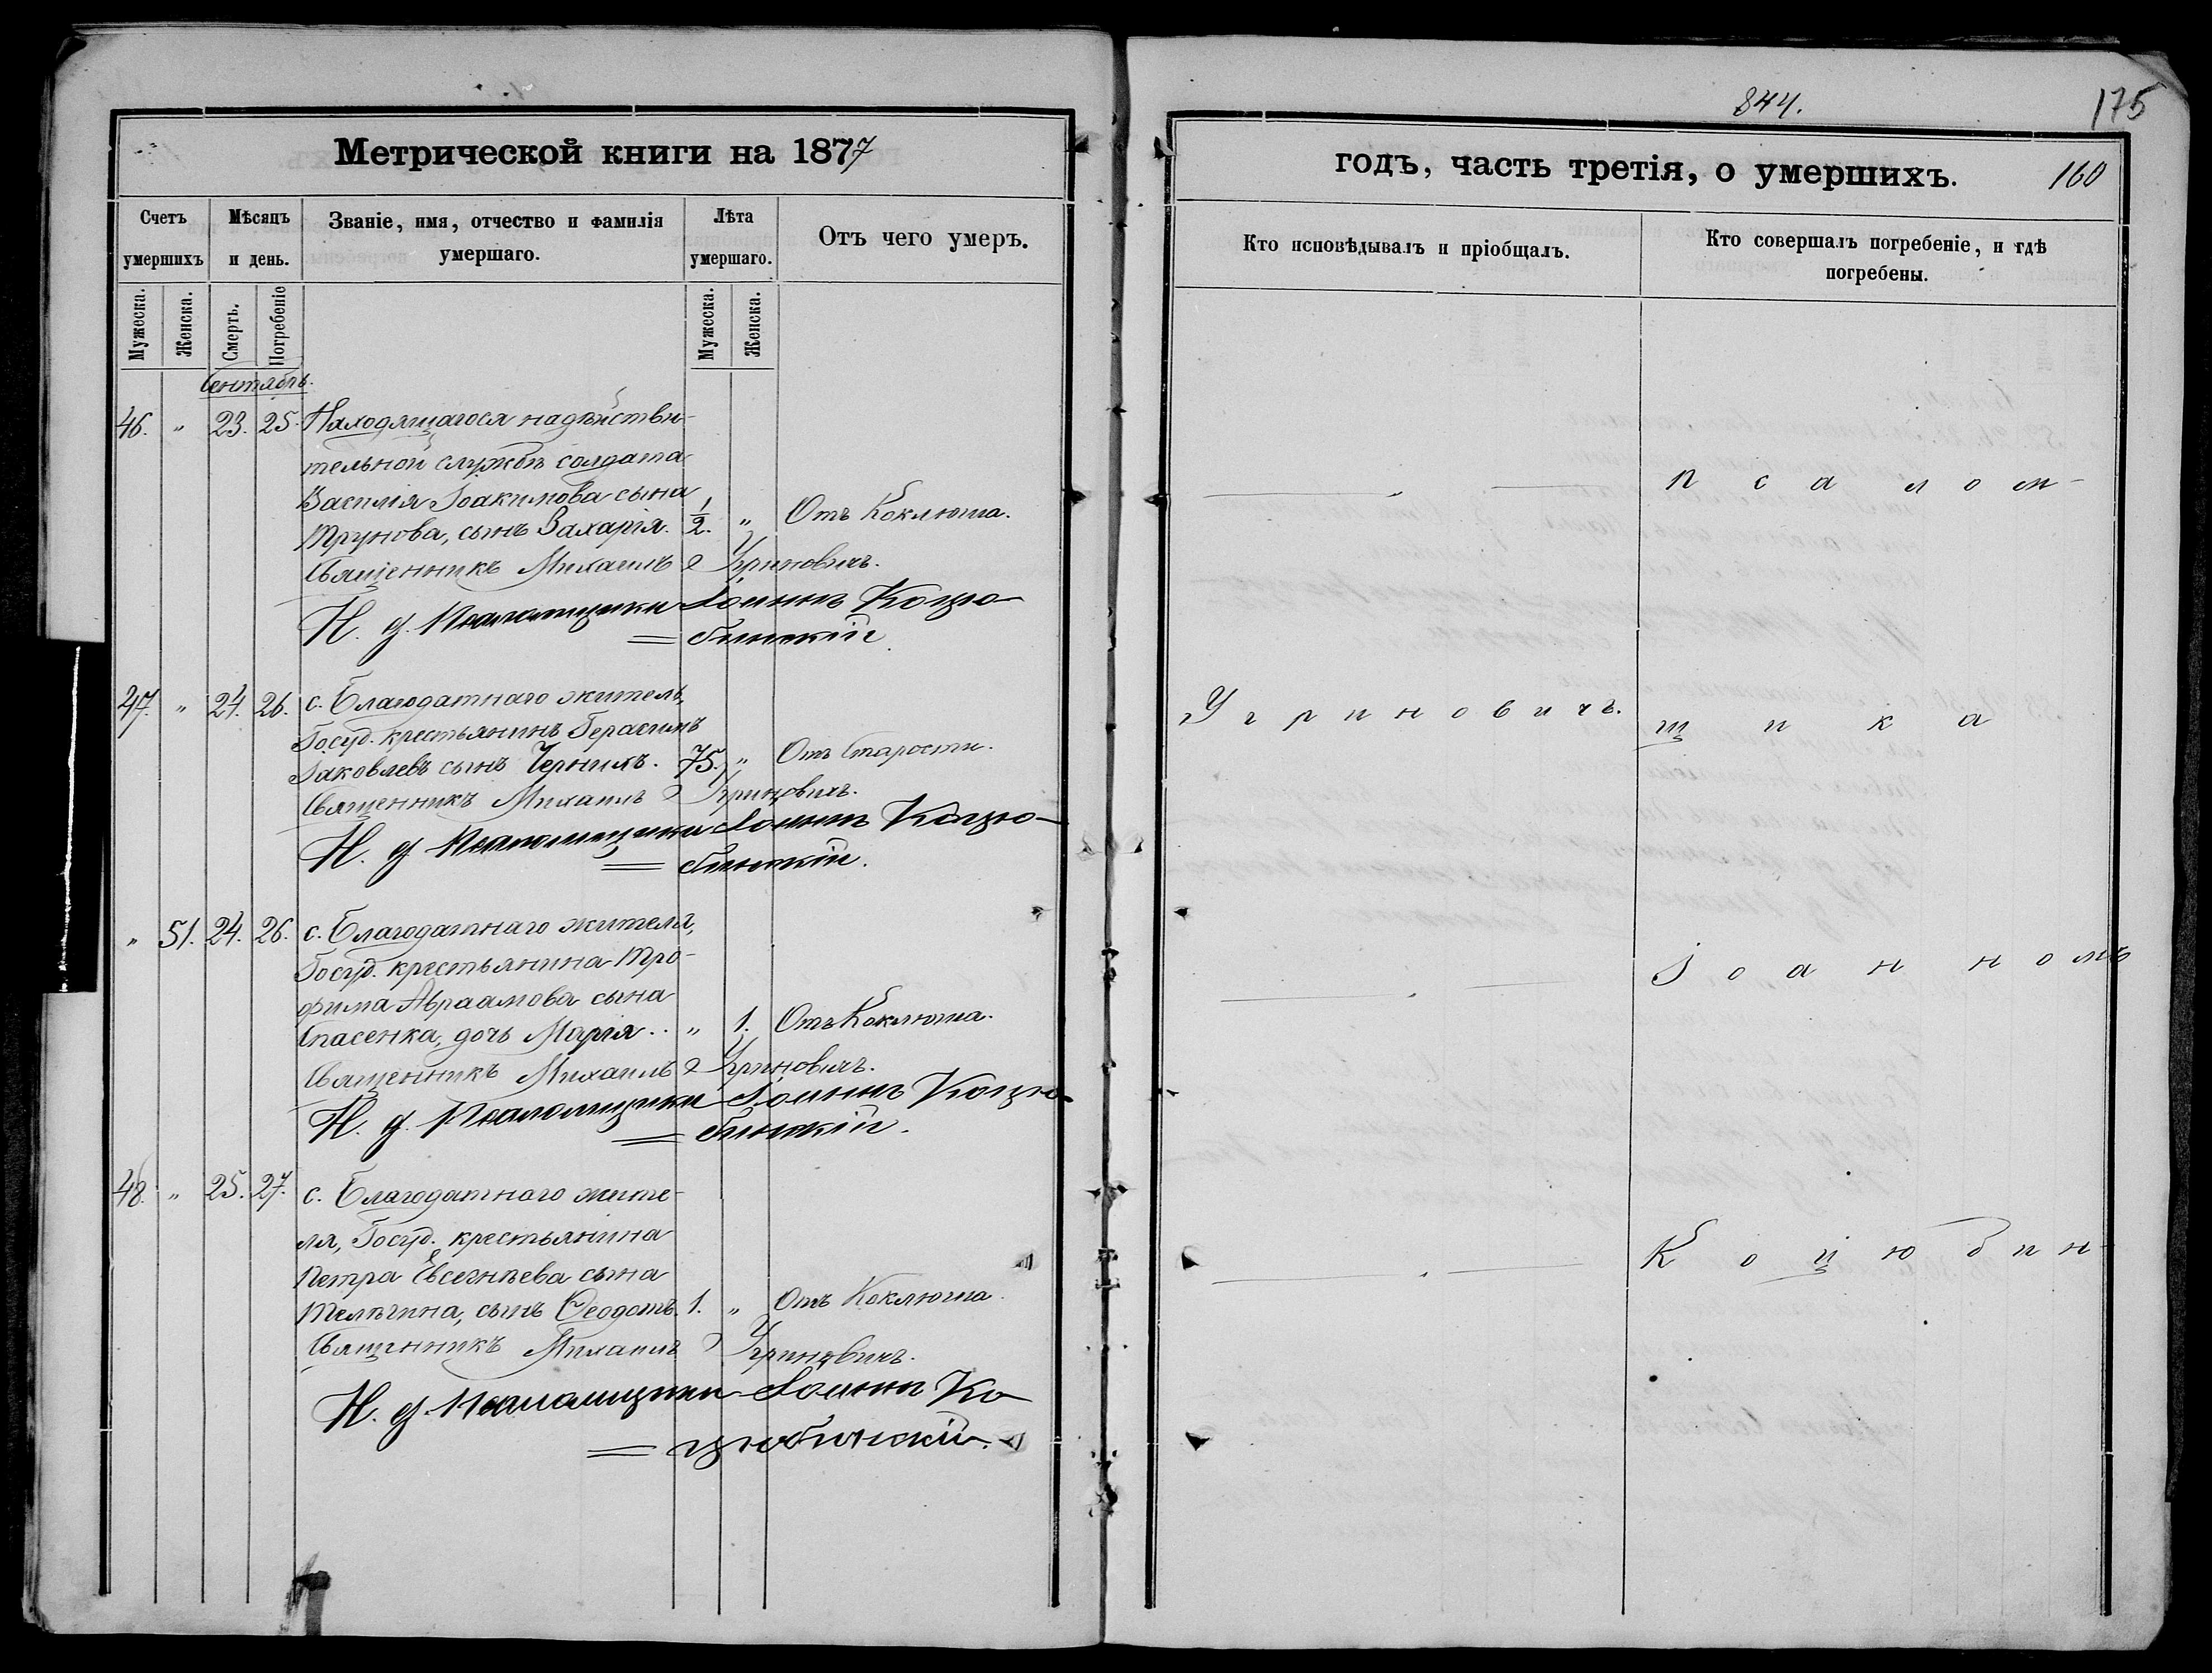 Метрической книги на 1877
Счетъ умершихъ
Мѣсяцъ и день.
Званіе, имя, отчество и фамилія умершаго.
Лѣта умершаго.
Отъ чего умеръ.
Мужеска.
Женска.
Смерть.
Погребеніе
Мужеска.
Женска.
Сентябрь.
46. „ 23. 25. Находящагося на дѣйстви-
тельной службѣ солдата
Василія Іоакимова сына
Трунова, сынъ Захарія. 1/2. „ Отъ Коклюша.
Священникъ Михаилъ Угриновичъ.
И. д. Псаломщика Іоаннъ Коцю-
бинскій.
47. „ 24. 26. с. Благодатнаго житель,
Госуд. крестьянинъ Герасимъ
Іаковлевъ сынъ Черныхъ. 75. „ Отъ Старости.
Священникъ Михаилъ Угриновичъ.
И. д. Псаломщика Іоаннъ Коцю-
бинскій.
„ 51. 24. 26. с. Благодатнаго жителя,
Госуд. крестьянина Тро-
фима Авраамова сына
Спасенка, дочь Марія.. „ 1. Отъ Коклюша.
Священникъ Михаилъ Угриновичъ.
И. д. Псаломщика Іоаннъ Коцю-
бинскій.
48. „ 25. 27. с. Благодатнаго жите-
ля, Госуд. крестьянина
Петра Евсегнѣева сына
Телѣгина, сынъ Ѳеодотъ. 1. „ Отъ Коклюша.
Священникъ Михаилъ Угриновичъ.
И. д. Псаломщика Іоаннъ Ко-
цюбинскій.
844.
175
годъ, часть третія, о умершихъ.
160
Кто исповѣдывалъ и пріобщалъ.
Кто совершалъ погребеніе, и гдѣ
погребены.
Псалом-
Угриновичъ. щика
Іоанномъ
Коцюбин-